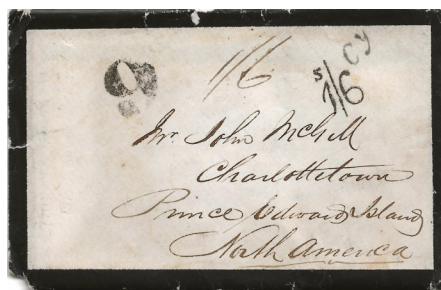 9 1/6 s 1/6 cy
Mr. John McGill
Charlottetown
Prince Edward Island
North America